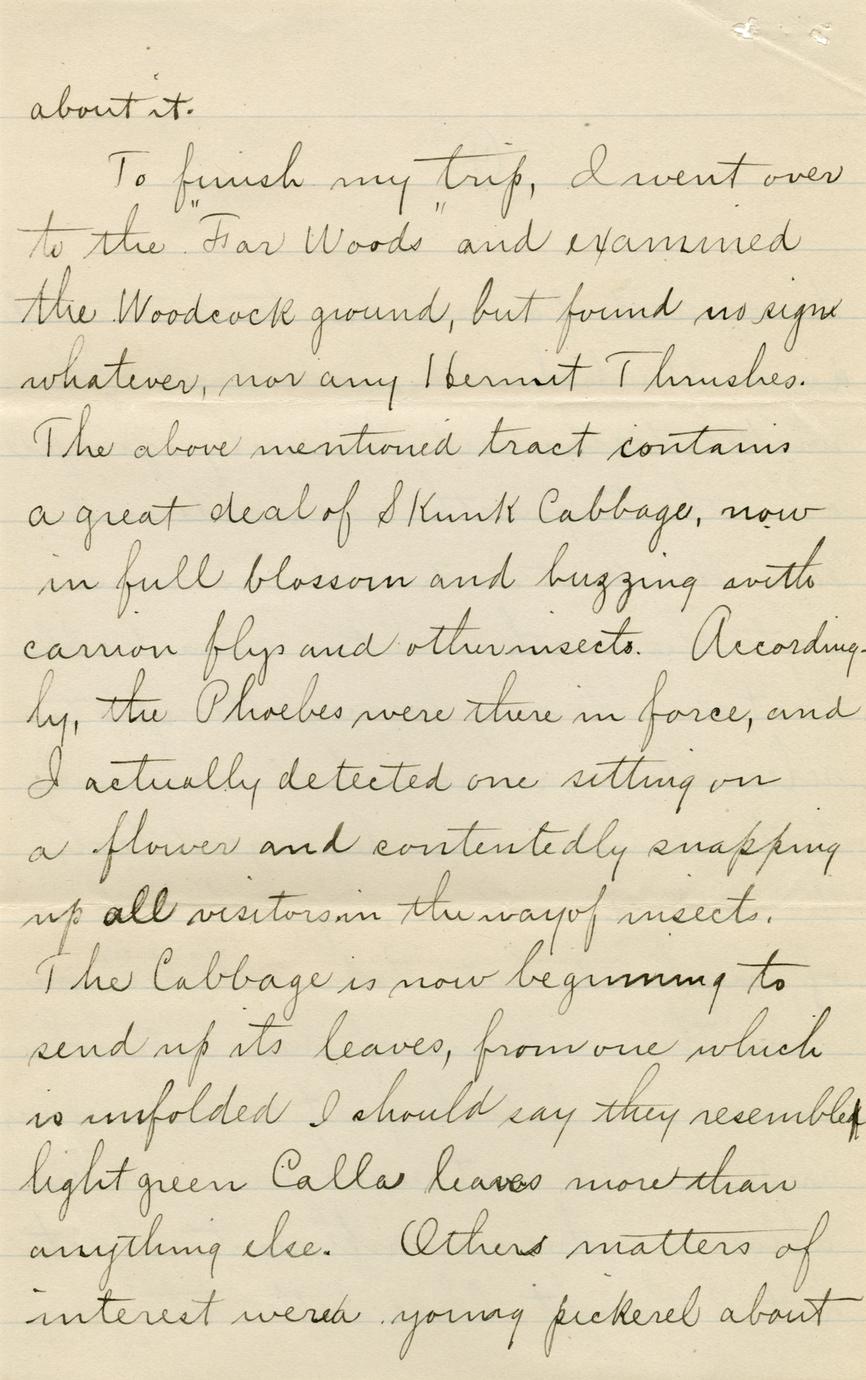 about it.
To finish my trip, I went over
to the "Far Woods" and examined
the Woodcock ground, but found no sign
whatever, nor any Hermit Thrushes.
The above mentioned tract contains
a great deal of Skunk Cabbage, now
in full blossom and buzzing with
carrion flys and other insects. According-
ly, the Phoebes were there in force, and
I actually detected one sitting on
a flower and contentedly snapping
up all visitors in the way of insects.
The Cabbage is now beginning to
send up its leaves, from one which
is unfolded I should say they resembled
light green Calla leaves more than
anything else. Others matters of
interest were a young pickerel about